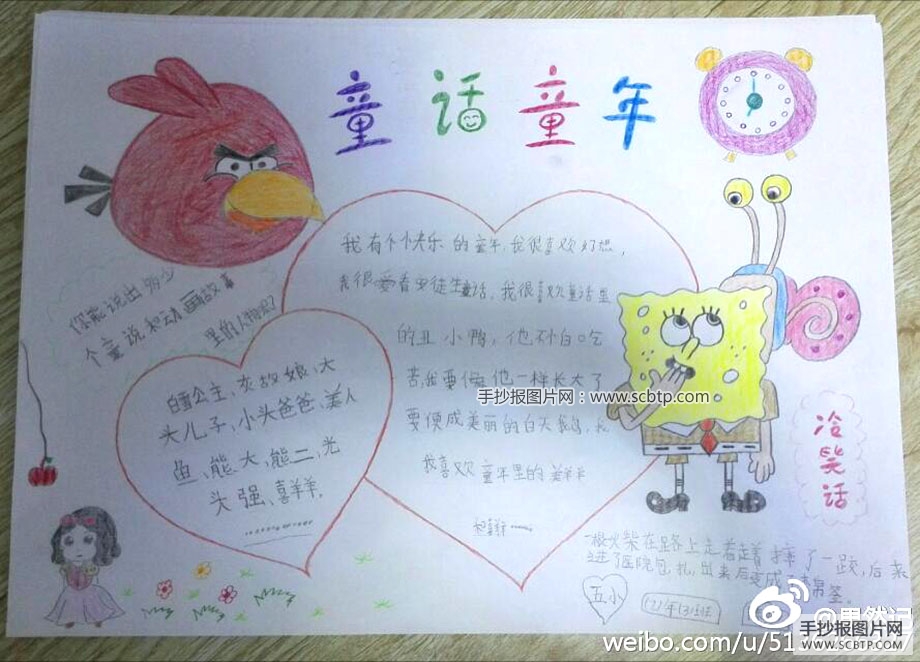 童话童年
你能说出多少
个童说和动画故事
里的人物呢?
白雪公主、灰故娘、大
头儿子、小头爸爸、美人
鱼、熊大、熊二、光
头强、喜羊羊,
我有个快乐的童年,我很喜欢幻想,
我很爱看安徒生童话,我很喜欢童话里
的丑小鸭,他不白吃
苦,我要像他一样长大了
要便成美丽的白天鹅,
我喜欢童年里的美羊羊
手抄报图片网:www.scbtp.com
冷
笑
话
一根火柴在路上走着走着摔了一跤,后来
进了医院包扎,出来后变成了棉签。
五小
weibo.com/u/51
@果然记
手抄报图片网
WWW.SCBTP.COM